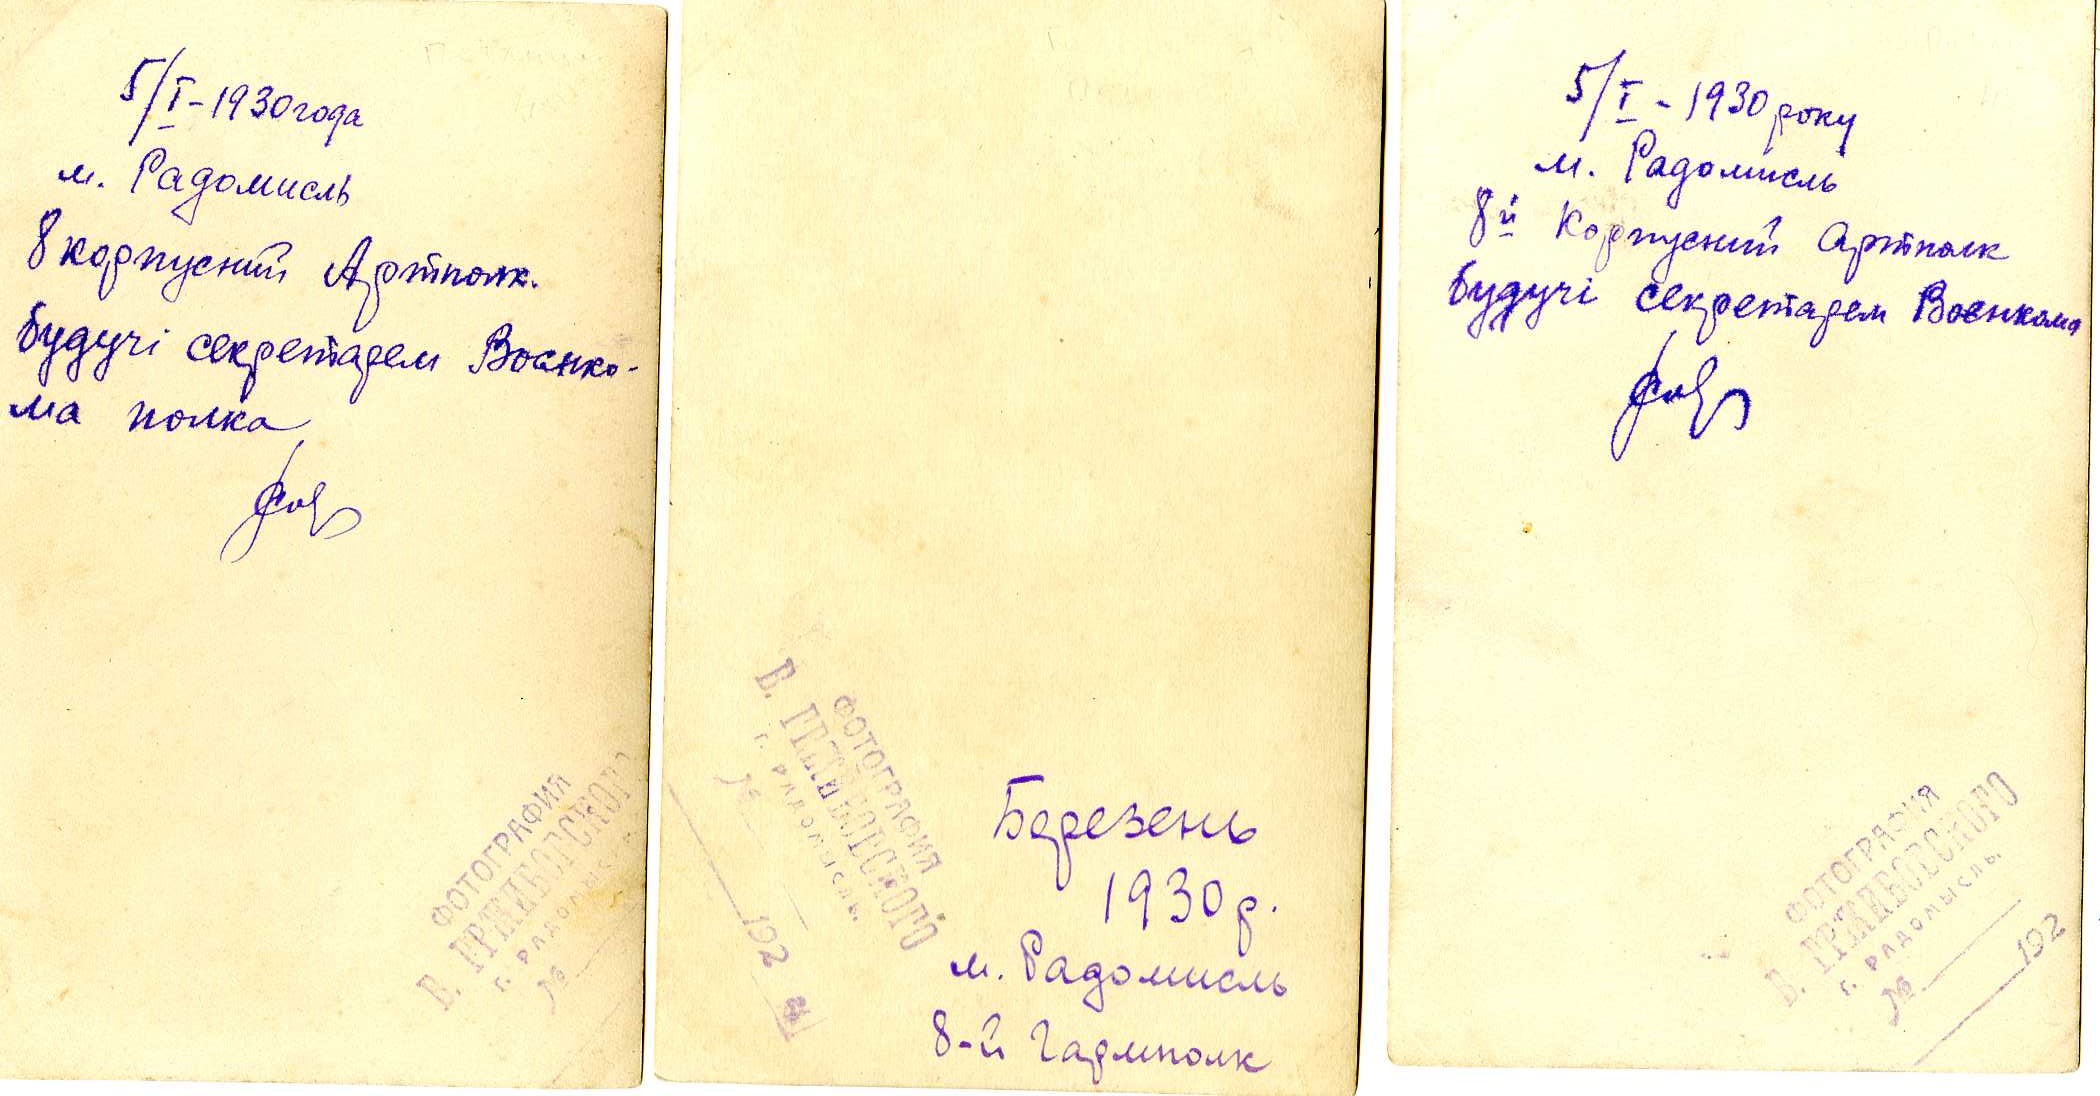 5/I - 1930 года
м. Радомисль
8 корпусний Артполк.
будучі секретарем Воєнко-
ма полка
ФОТОГРАФИЯ
В. ГРЖИБОВСКОГО
г. РАДОМЫСЛЬ
№
ФОТОГРАФИЯ
В. ГРЖИБОВСКОГО
г. РАДОМЫСЛЬ.
№
192
Березень
1930 р.
м. Радомисль
8-й Гармполк
5/I - 1930 року
м. Радомисль
8й Корпусний Артполк
будучі секретарем Воєнкома
ФОТОГРАФИЯ
В. ГРЖИБОВСКОГО
г. РАДОМЫСЛЬ.
№ 192